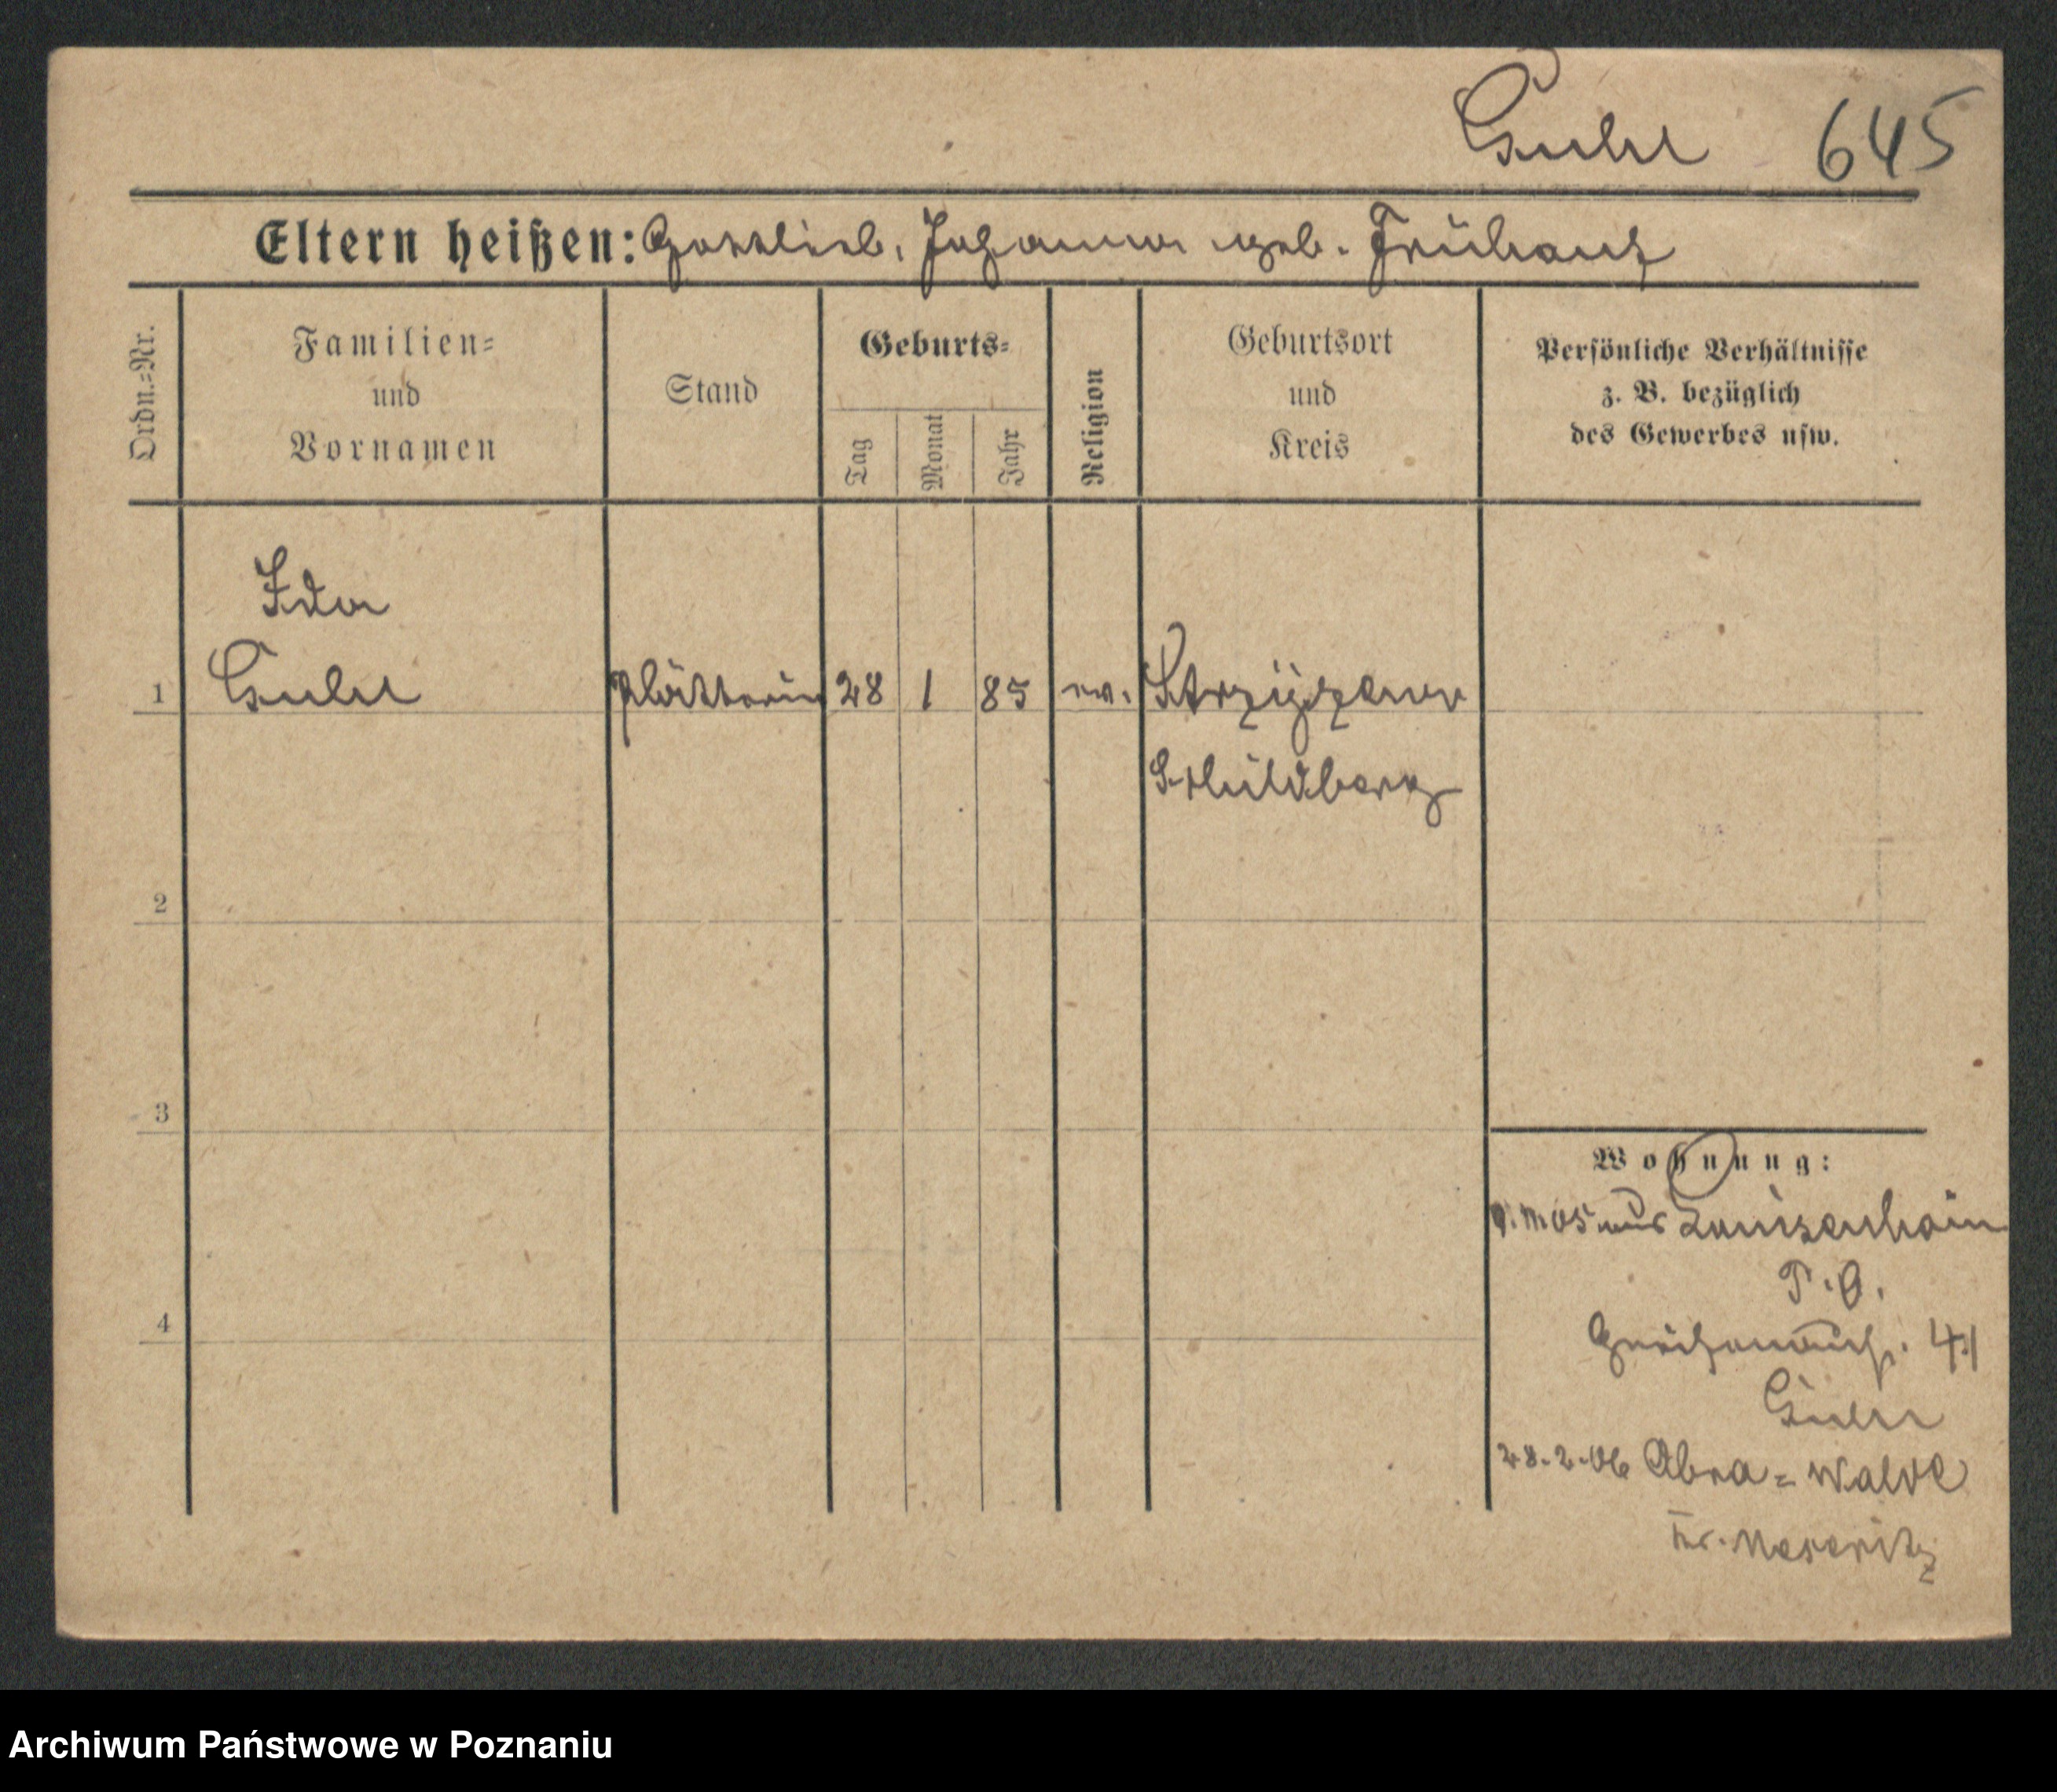 Guhr 645
Eltern heißen: Gottlieb, Johanna geb. Frühauf
Ordn.=Nr.
Familien=
und
Vornamen
Stand
Geburts=
Tag
Monat
Jahr
Religion
Geburtsort
und
Kreis
Persönliche Verhältnisse
z. B. bezüglich
des Gewerbes usw.
Ida
1 Guhr Plätterin 28 1 85 ev.
Schildberg
2
3
4
Wohnung:
aus Luisenhain
P. O.
41
Guhr
28.2.06 Obra=Walde
Kr. Meseritz
Archiwum Państwowe w Poznaniu